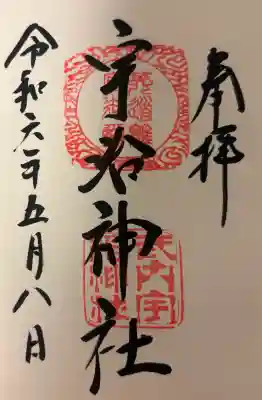 奉拝
宇治神社
令和六年五月八日